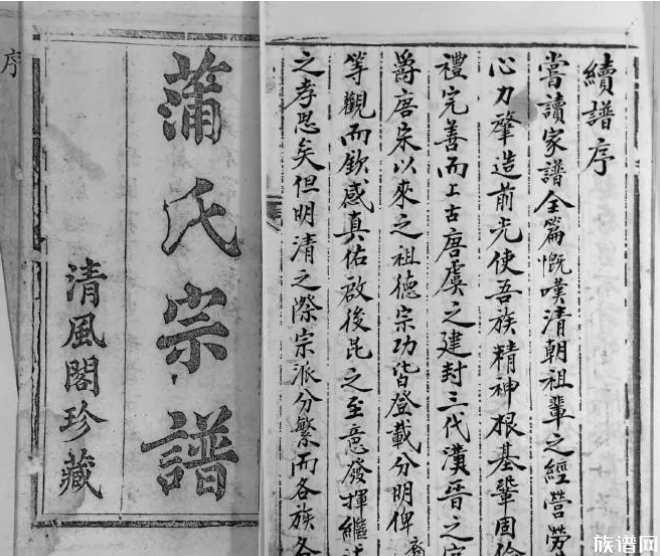 序
蒲氏宗譜
清風閣珍藏
續譜序
嘗讀家譜全篇慨嘆清朝祖輩之經營勞
心力肇造前光使吾族精神根基鞏固
禮完善而上古唐虞之建封三代漢晉之
爵唐宋以來之祖德宗功皆登載分明俾
等觀而欽感真佑啟後昆之至意發揮繼
之孝思矣但明清之際宗派分繁而各族各
族谱网